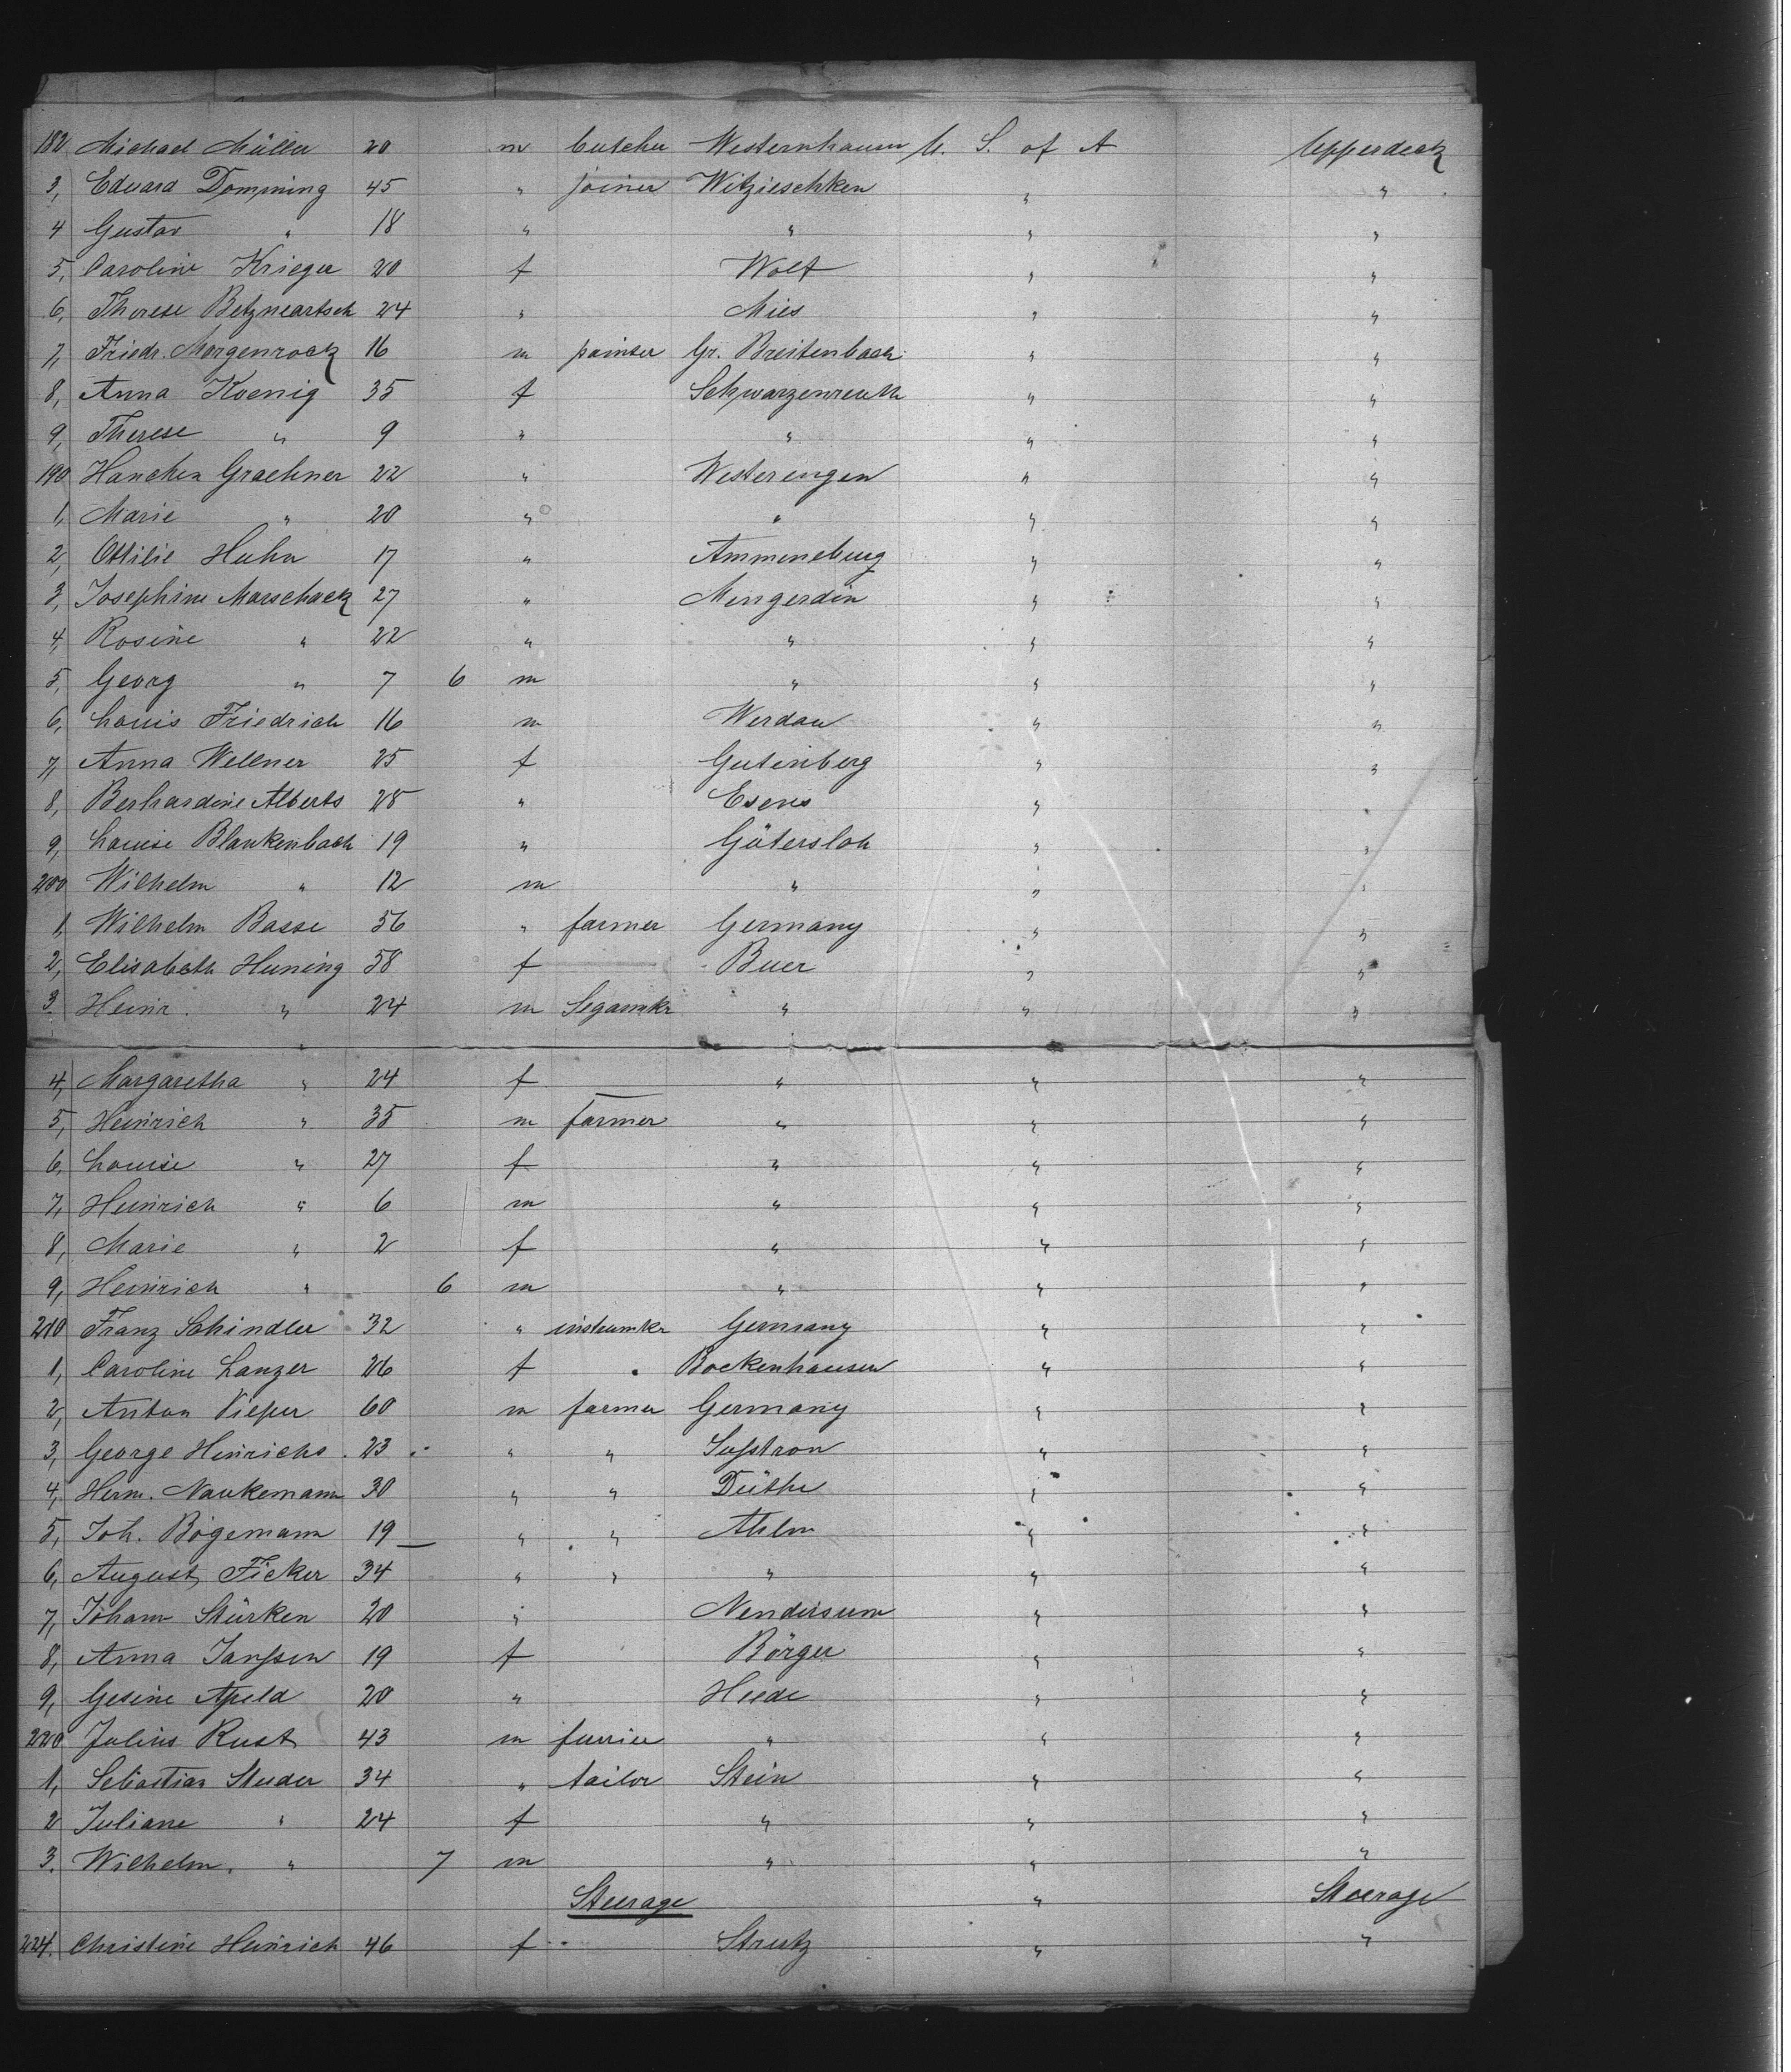 182 Michael Müller 20 m butcher Westernhausen U. S. of A Upperdeck
3, Eduard Domming 45 " joiner Witzischken " "
4 Gustav " 18 " " " "
5, Caroline Krieger 20 f Wolf " "
6, Therese 24 " Mies " "
7, Friedr. Morgenrock 16 m painter Gr. Breitenbach " "
8, Anna Koenig 35 f Schwarzenreuth " "
9, Therese " 9 " " " "
190 Hanchen Graehner 22 " Westerengen " "
1, Marie " 20 " " " "
2, Ottilie Huhn 17 " Ammeneburg " "
3, Josephine Marschack 27 " Mengerdin " "
4, Rosine " 22 " " " "
5, Georg " 7 6 m " " "
6, Louis Friedrich 16 m Werdau " "
7, Anna Wellner 25 f Gutenberg " "
8, Berhardine Alberts 28 " Esens " "
9, Louise Blankenbach 19 " Gütersloh " "
200 Wilhelm " 12 m " " "
1, Wilhelm Basse 56 " farmer Germany " "
2, Elisabeth Huning 58 f Buer " "
3 Heinr. " 24 m Segarmkr " " "
4, Margaretha " 24 f " " "
5, Heinrich " 35 m farmer " " "
6, Louise " 27 f " " "
7, Heinrich " 6 m " " "
8, Marie " 2 f " " "
9, Heinrich " 6 m " " "
210 Franz Schindler 32 " instrumkr Germany " "
1, Caroline Lanzer 26 f Bockenhausen " "
2, Anton Pieper 60 m farmer Germany " "
3, George Heinrichs 23 " " " "
4, Herm. Naukemann 30 " " Düthe " "
5, Joh. Bögemann 19 " " Ahlen " "
6, August Ficker 34 " " " " "
7, Johann Stürken 20 " Nendorsum " "
8, Anna Janssen 19 f Börger " "
9, Gesine Apeld 20 " Heede " "
220 Julius Rust 43 m furrier " " "
1, Sebastian Studer 34 " tailor Stein " "
2 Juliane " 24 f " " "
3. Wilhelm " 7 m " " "
Steerage " Steerage
224. Christine Heinrich 46 f Strutz " "